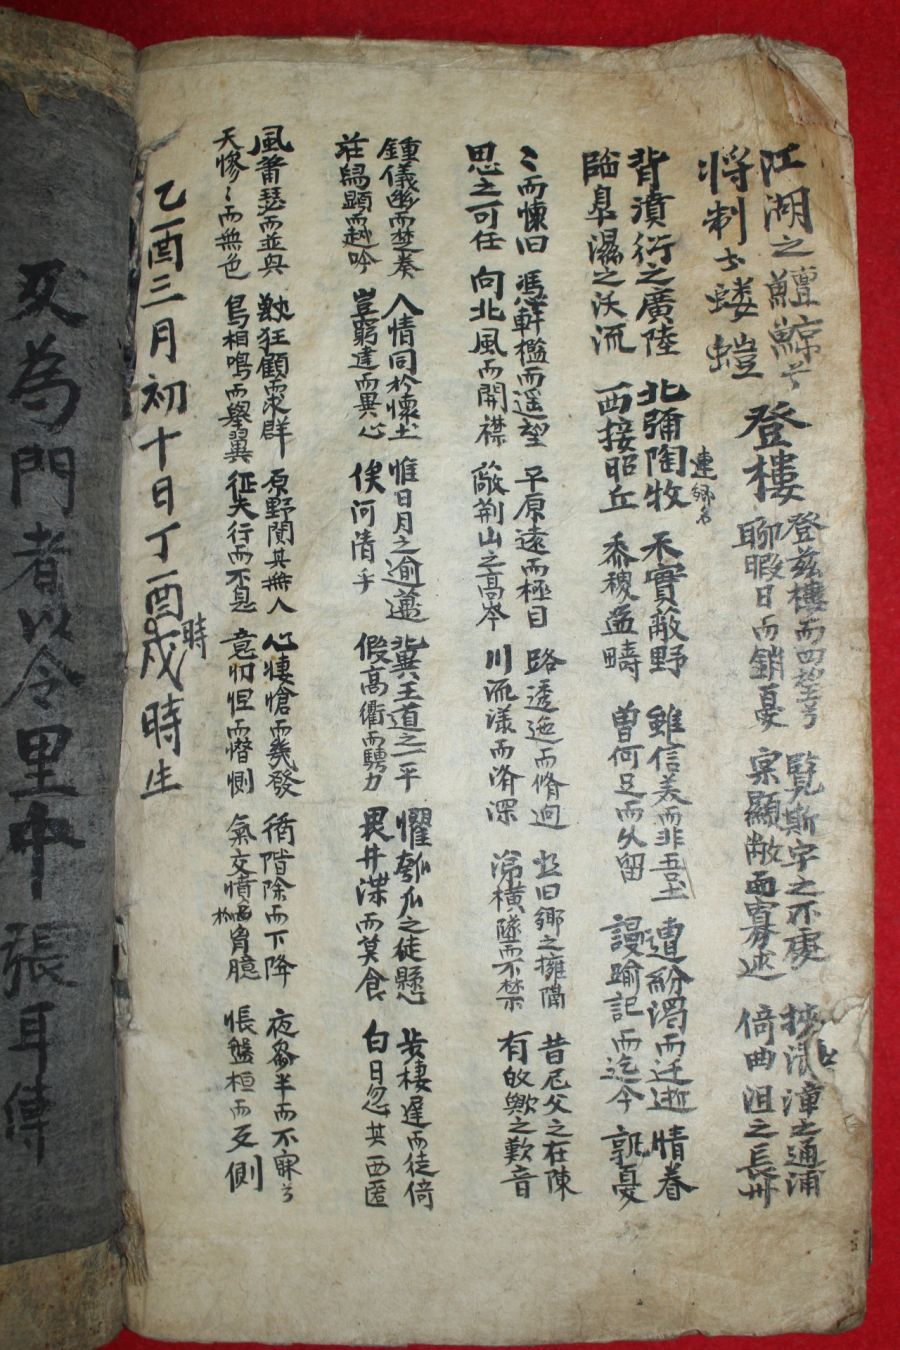 江湖之鱣鯨兮
将制於螻螘
登樓
登兹樓而四望兮
聊暇日而銷憂
覽斯宇之所處
寔顯敞而寡逑
挾清漳之通浦
倚曲沮之長州
背濆衍之廣陸
臨皐濕之沃流
北彌陶牧
西接昭丘
連鄉名
禾實蔽野
黍稷盈疇
雖信美而非吾土
曾何足而久留
遭紛濁而迁逝
謾踰記而迄今
情眷
孰憂
ミ而懷旧
思之可任
憑軒檻而遥望
向北風而開襟
平原遠而極目
蔽荆山之高岑
路逶迤而脩逈
川流漾而濟深
悲旧鄉之擁隔
涕橫墜而不禁
昔尼父之在陳
有歟之歎音
鍾儀幽而楚奏
莊舄顯而越吟
人情同於懷土
豈窮達而異心
惟日月之逾邁
俟河清乎
冀王道之一平
假高衢而騁力
懼匏瓜之徒懸
畏井渫而莫食
步棲遲而徒倚
白日忽其西匿
風蕭瑟而並興
天慘ミ而無色
獸狂顧而求群
鳥相鳴而舉翼
原野闃其無人
征夫行而不息
心悽愴而感發
意忉怛而憯惻
循階除而下降
氣交憤於胷臆
夜參半而不寐兮
悵盤桓而反側
乙酉三月初十日丁酉戌時生
時
反為門者以令里中張耳傳